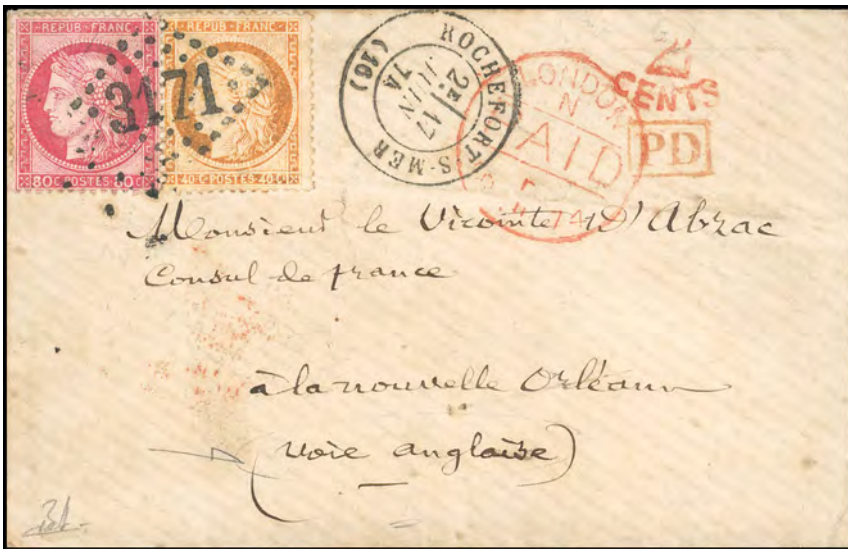 REPUB·FRANC· REPUB·FRANC·
3171
80C·POSTES·80C· 40C·POSTES·40C·
ROCHEFORT-S-MER
2E
17
JUIN
74
(16)
LONDON
N
PAID
74
2
CENTS
PD
Monsieur le Vicomte d'Abzac
Consul de france
à la nouvelle Orléans
(voie anglaise)